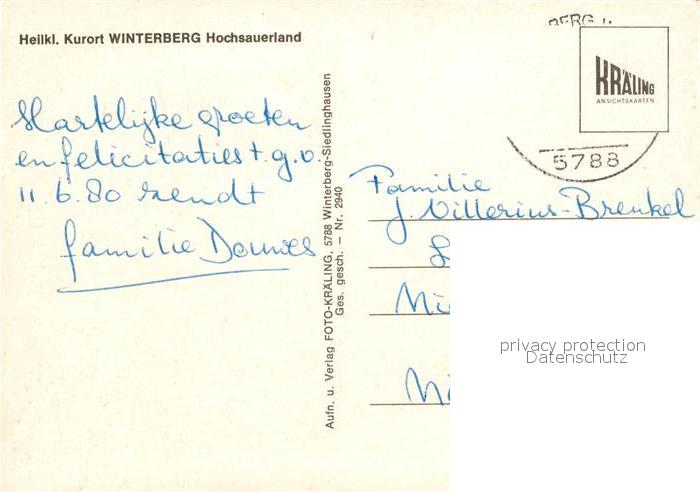 Heilkl. Kurort WINTERBERG Hochsauerland
Hartelijke groeten
en felicitaties t.g.v.
11.6.80 zendt
familie Douwes
Aufn. u. Verlag FOTO-KRÄLING, 5788 Winterberg-Siedlinghausen
Ges. gesch. – Nr. 2940
BERG
KRÄLING
ANSICHTSKARTEN
5788
Familie
J. Villerius-Brenkel
privacy protection
Datenschutz